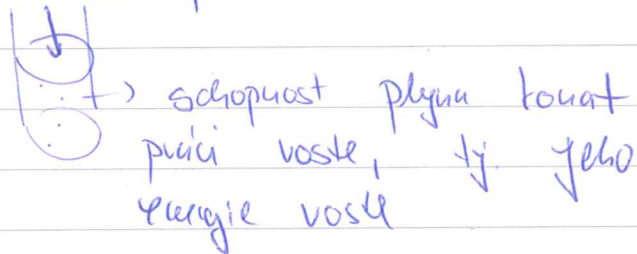 → schopnost plynu konat
práci roste, tj. jeho
energie roste